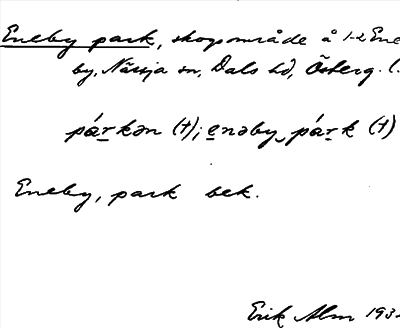 Eneby park, skogsområde å 1-2 Ene
by, Nässja sn, Dals hd, Österg. (.
párkən (†); enəby párk (†)
Eneby, park bek.
Erik Alm 193